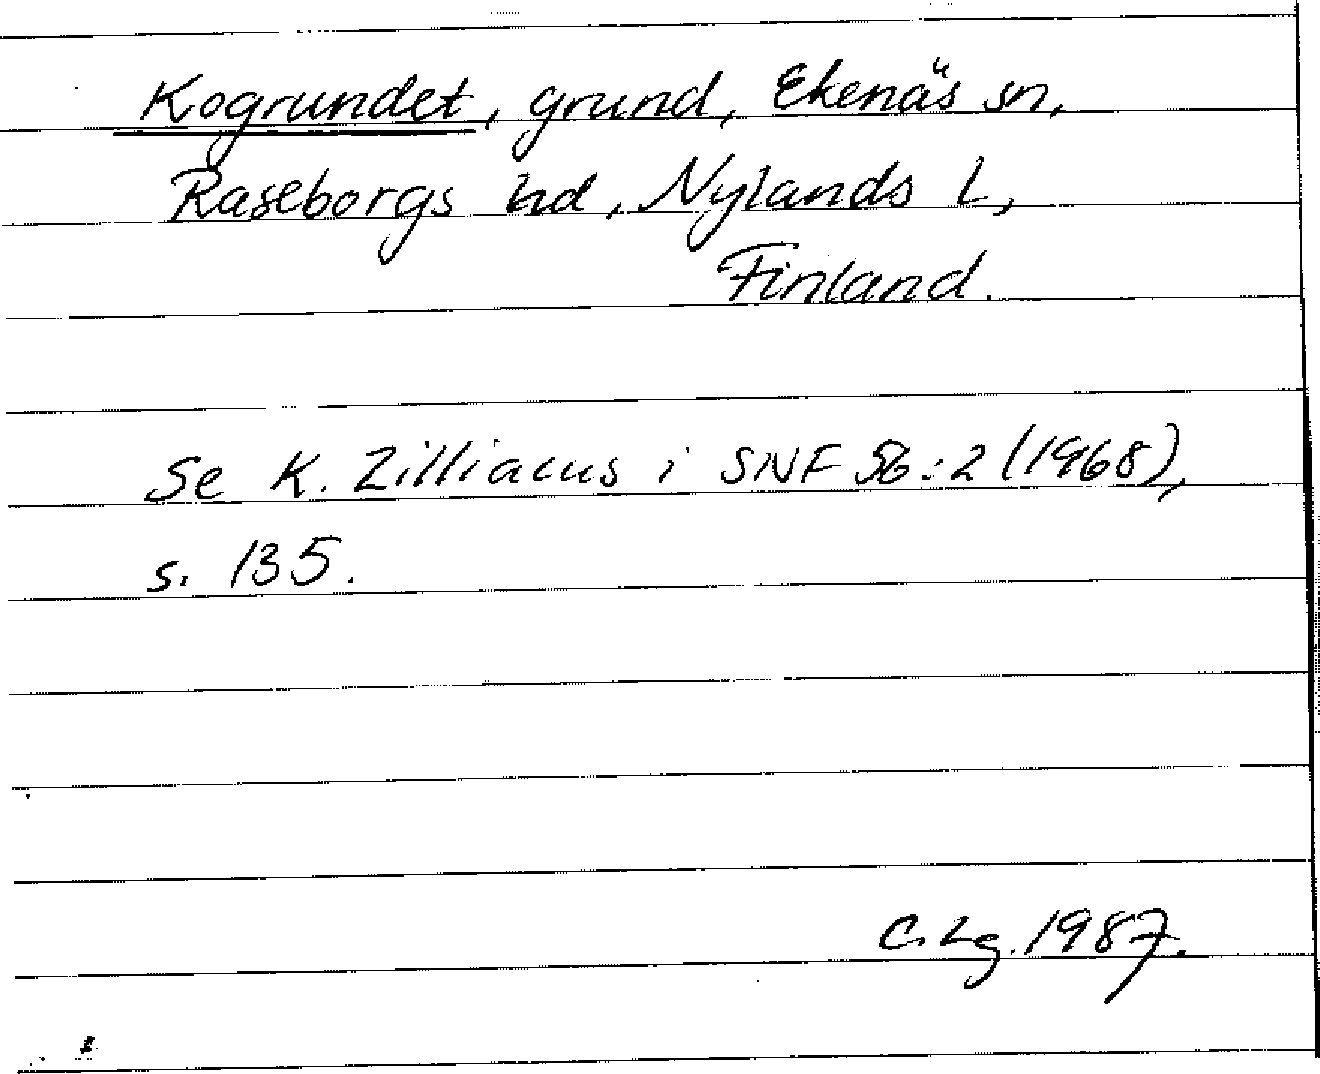 Kogrundet, grund, Ekenäs sn,
Raseborgs hd, Nylands L,
Finland.
Se K. Zilliacus i SNF 56:2 (1968),
s. 135.
C. Lg. 1987.